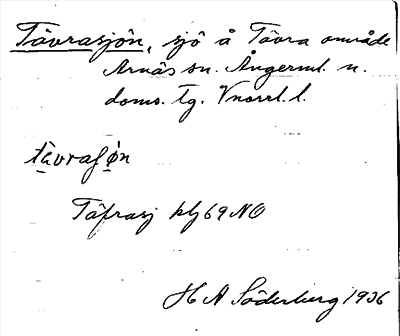 Tävrasjön, sjö å Tävra område
Arnäs sn. Ångerml. n.
doms. tg. Vnorrl. l.
tävrasjøn
Täfrasj kbl 69 NO
H A Söderberg 1936